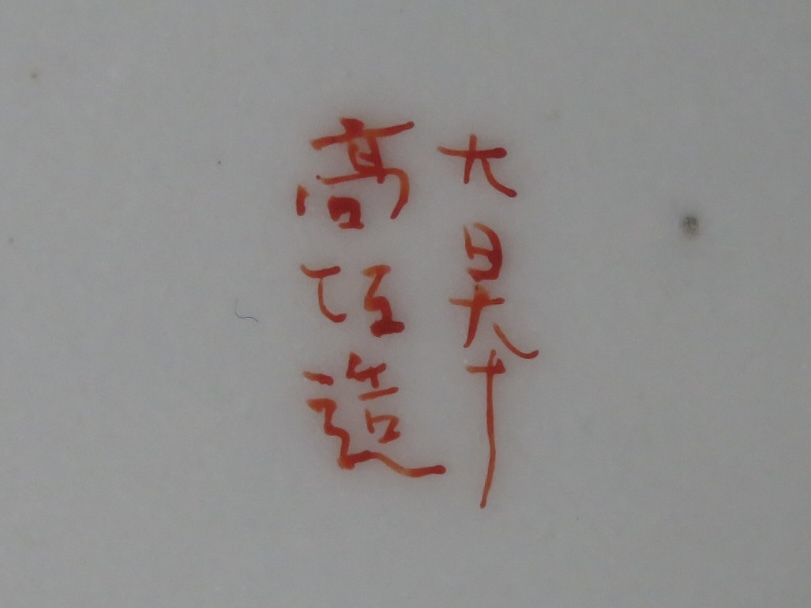 大日本
高 造